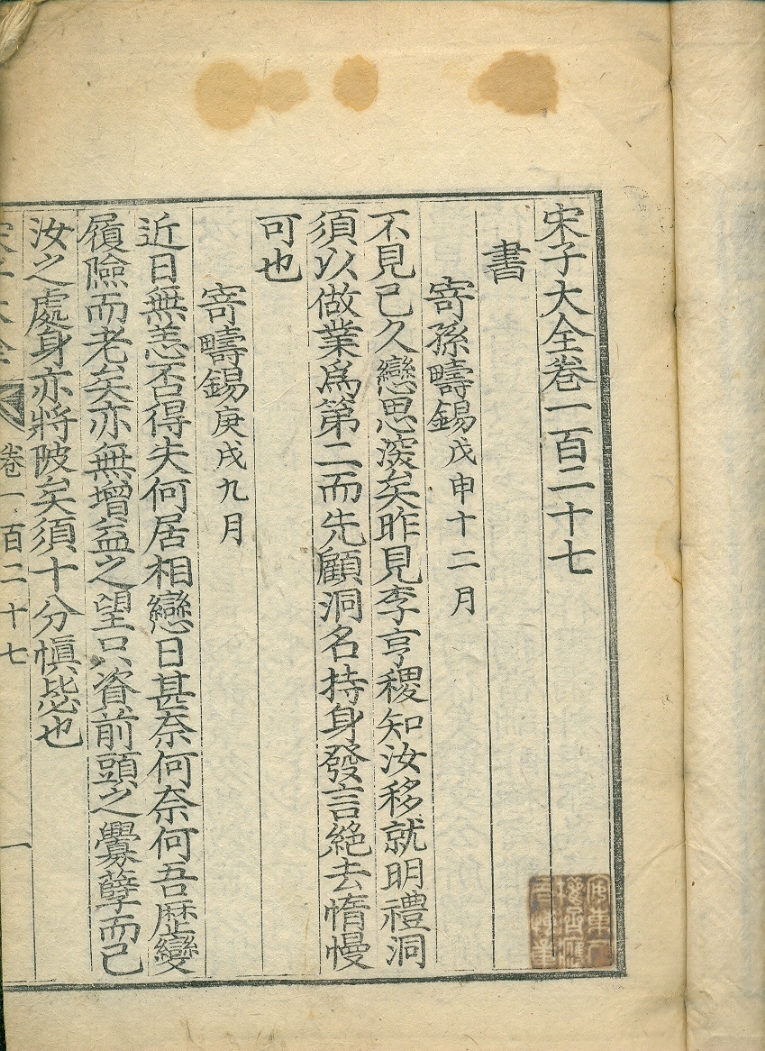 宋子大全卷一百二十七
書
寄孫疇錫戊申十二月
不見已久戀思深矣昨見李亨稷知汝移就明禮洞
須以做業爲第二而先顧洞名持身發言絕去惰慢
可也
寄疇錫庚戌九月
近日無恙否得失何居相戀日甚奈何奈何吾歷變
履險而老矣亦無增益之望只資前頭之釁孽而已
汝之處身亦將陂矣須十分愼毖也
宋子大全
卷一百二十七
一